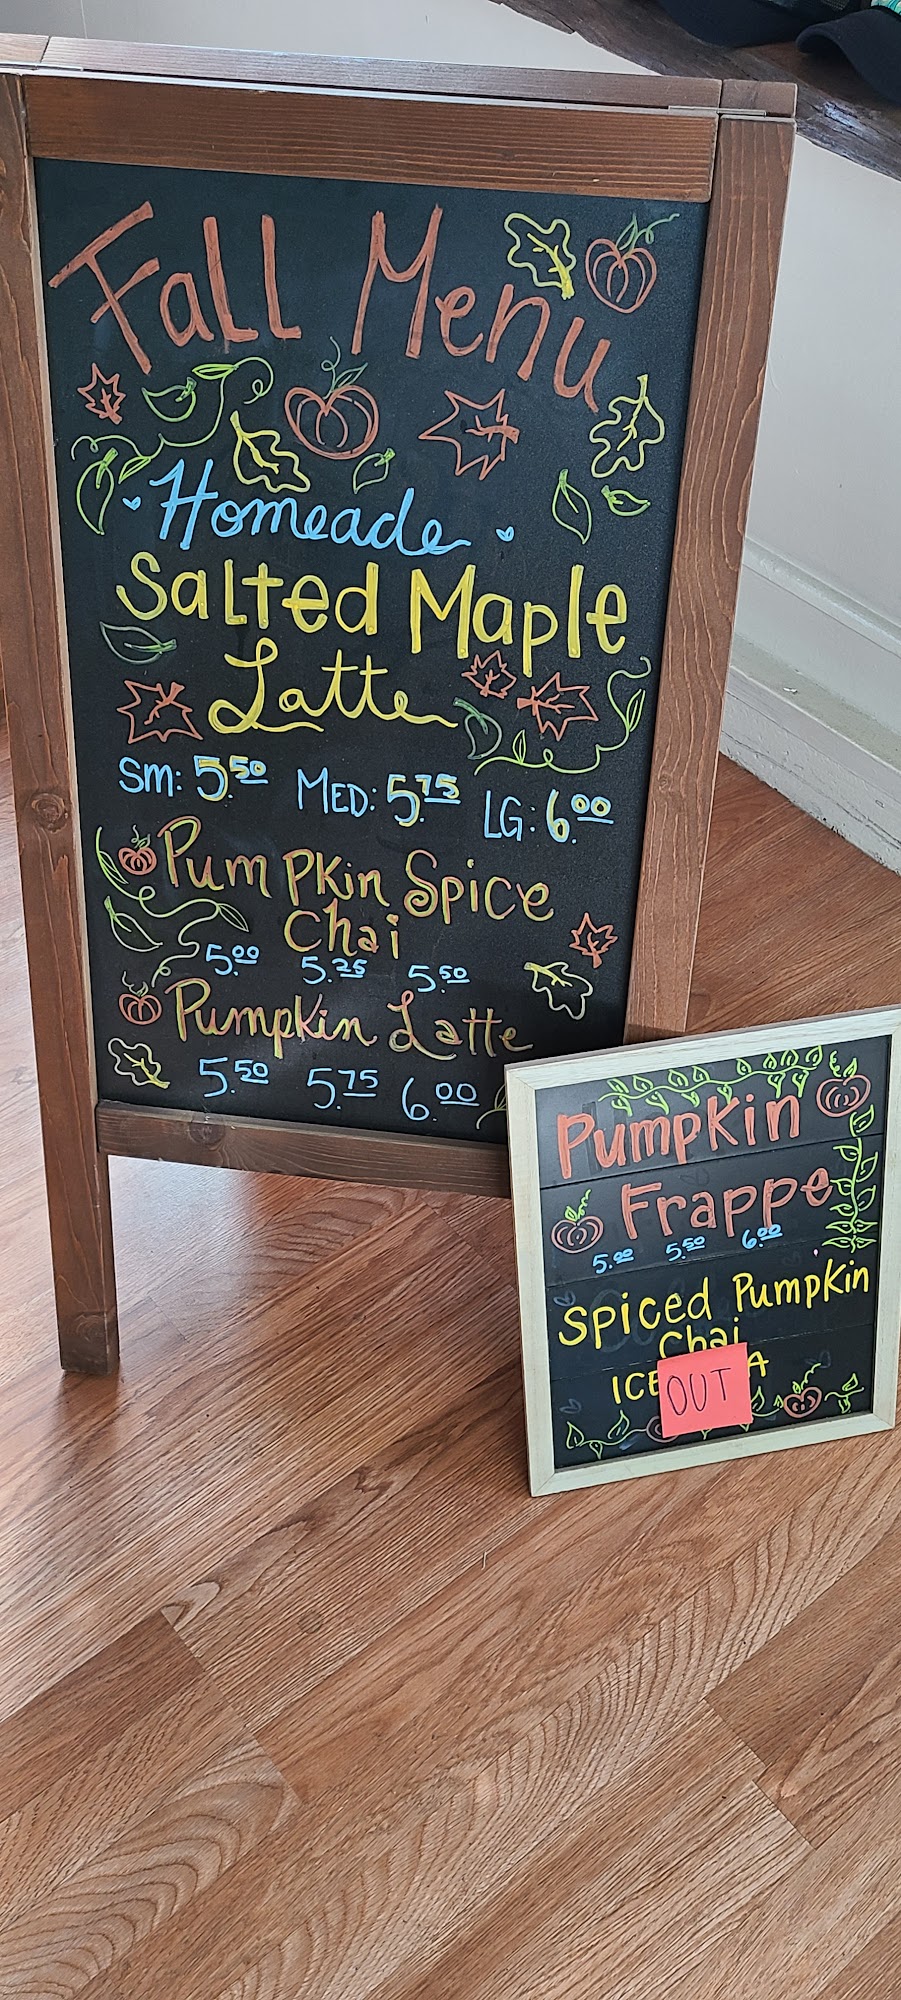 Fall Menu
Homeade
Salted Maple
Latte
SM: 5.50 MED: 5.75 LG: 6.00
Pumpkin Spice
Chai
5.00 5.25 5.50
Pumpkin Latte
5.50 5.75 6.00
Pumpkin
Frappe
5.00 5.50 6.00
Spiced Pumpkin
Chai
OUT